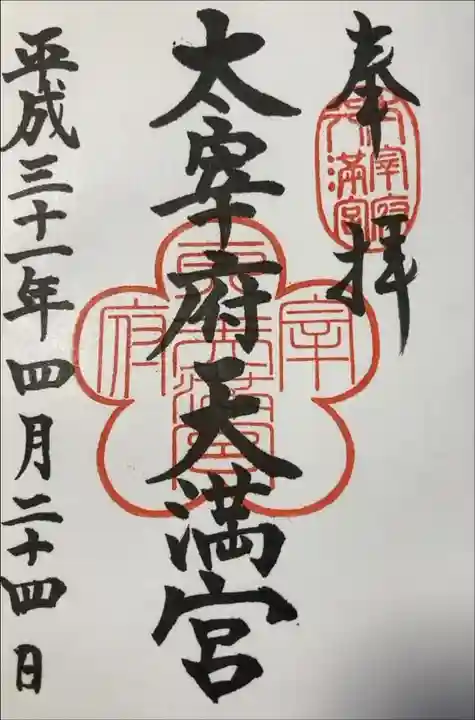 奉拝
太宰府天満宮
平成三十一年四月二十四日